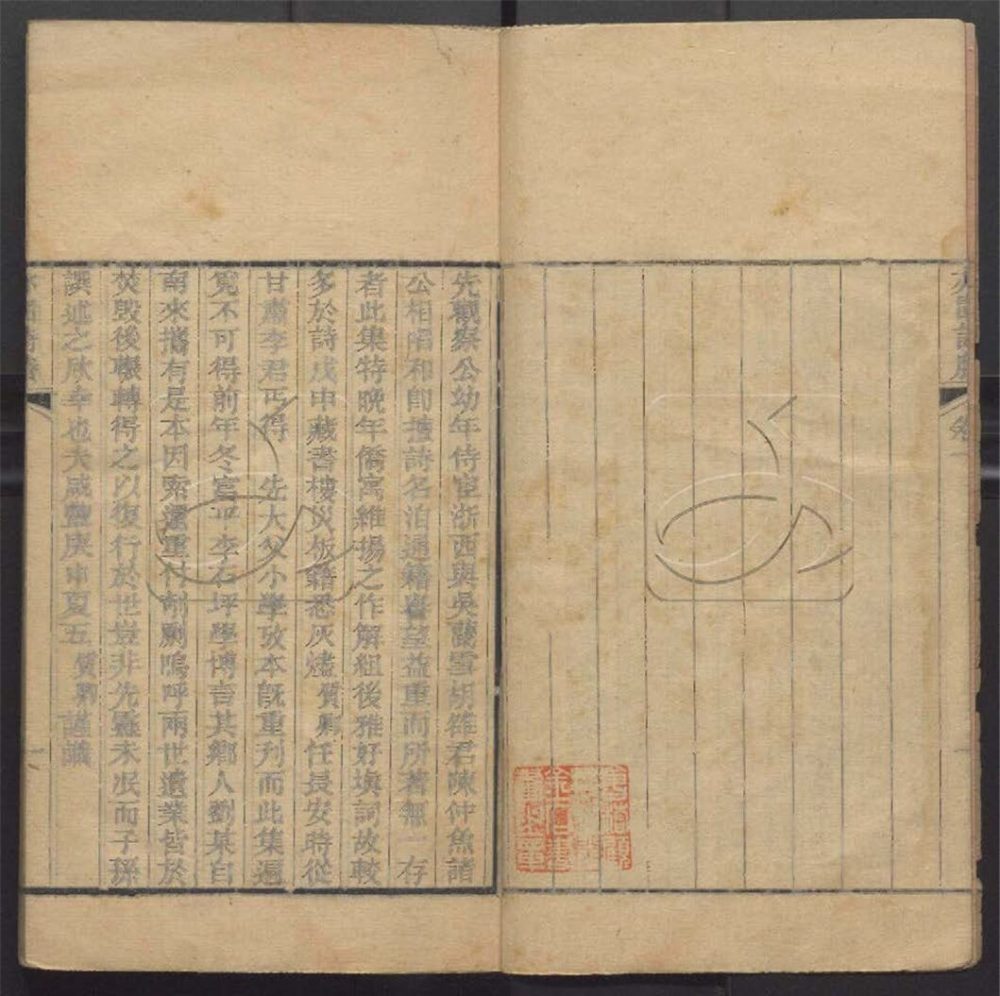 先觀察公幼年侍宦浙西與吳蘭雪胡雒君陳仲魚諸
公相唱和卽擅詩名洎通籍費望益重而所著無一存
者此集特晚年僑寓維揚之作解組後雅好塡詞故較
多於詩戊申藏書樓災板籍悉灰燼質卿任長安時從
甘肅李君 得先大父小學攷本旣重刋而此集遍
覓不可得前年冬富平李石坪學博言其鄉人劉某自
南來攜有是本因索還重付剞劂嗚呼兩世遺業皆於
焚毀後輾轉得之以復行於世豈非先靈未泯而子孫
譔述之欣幸也夫咸豐庚申夏五質卿謹識
一